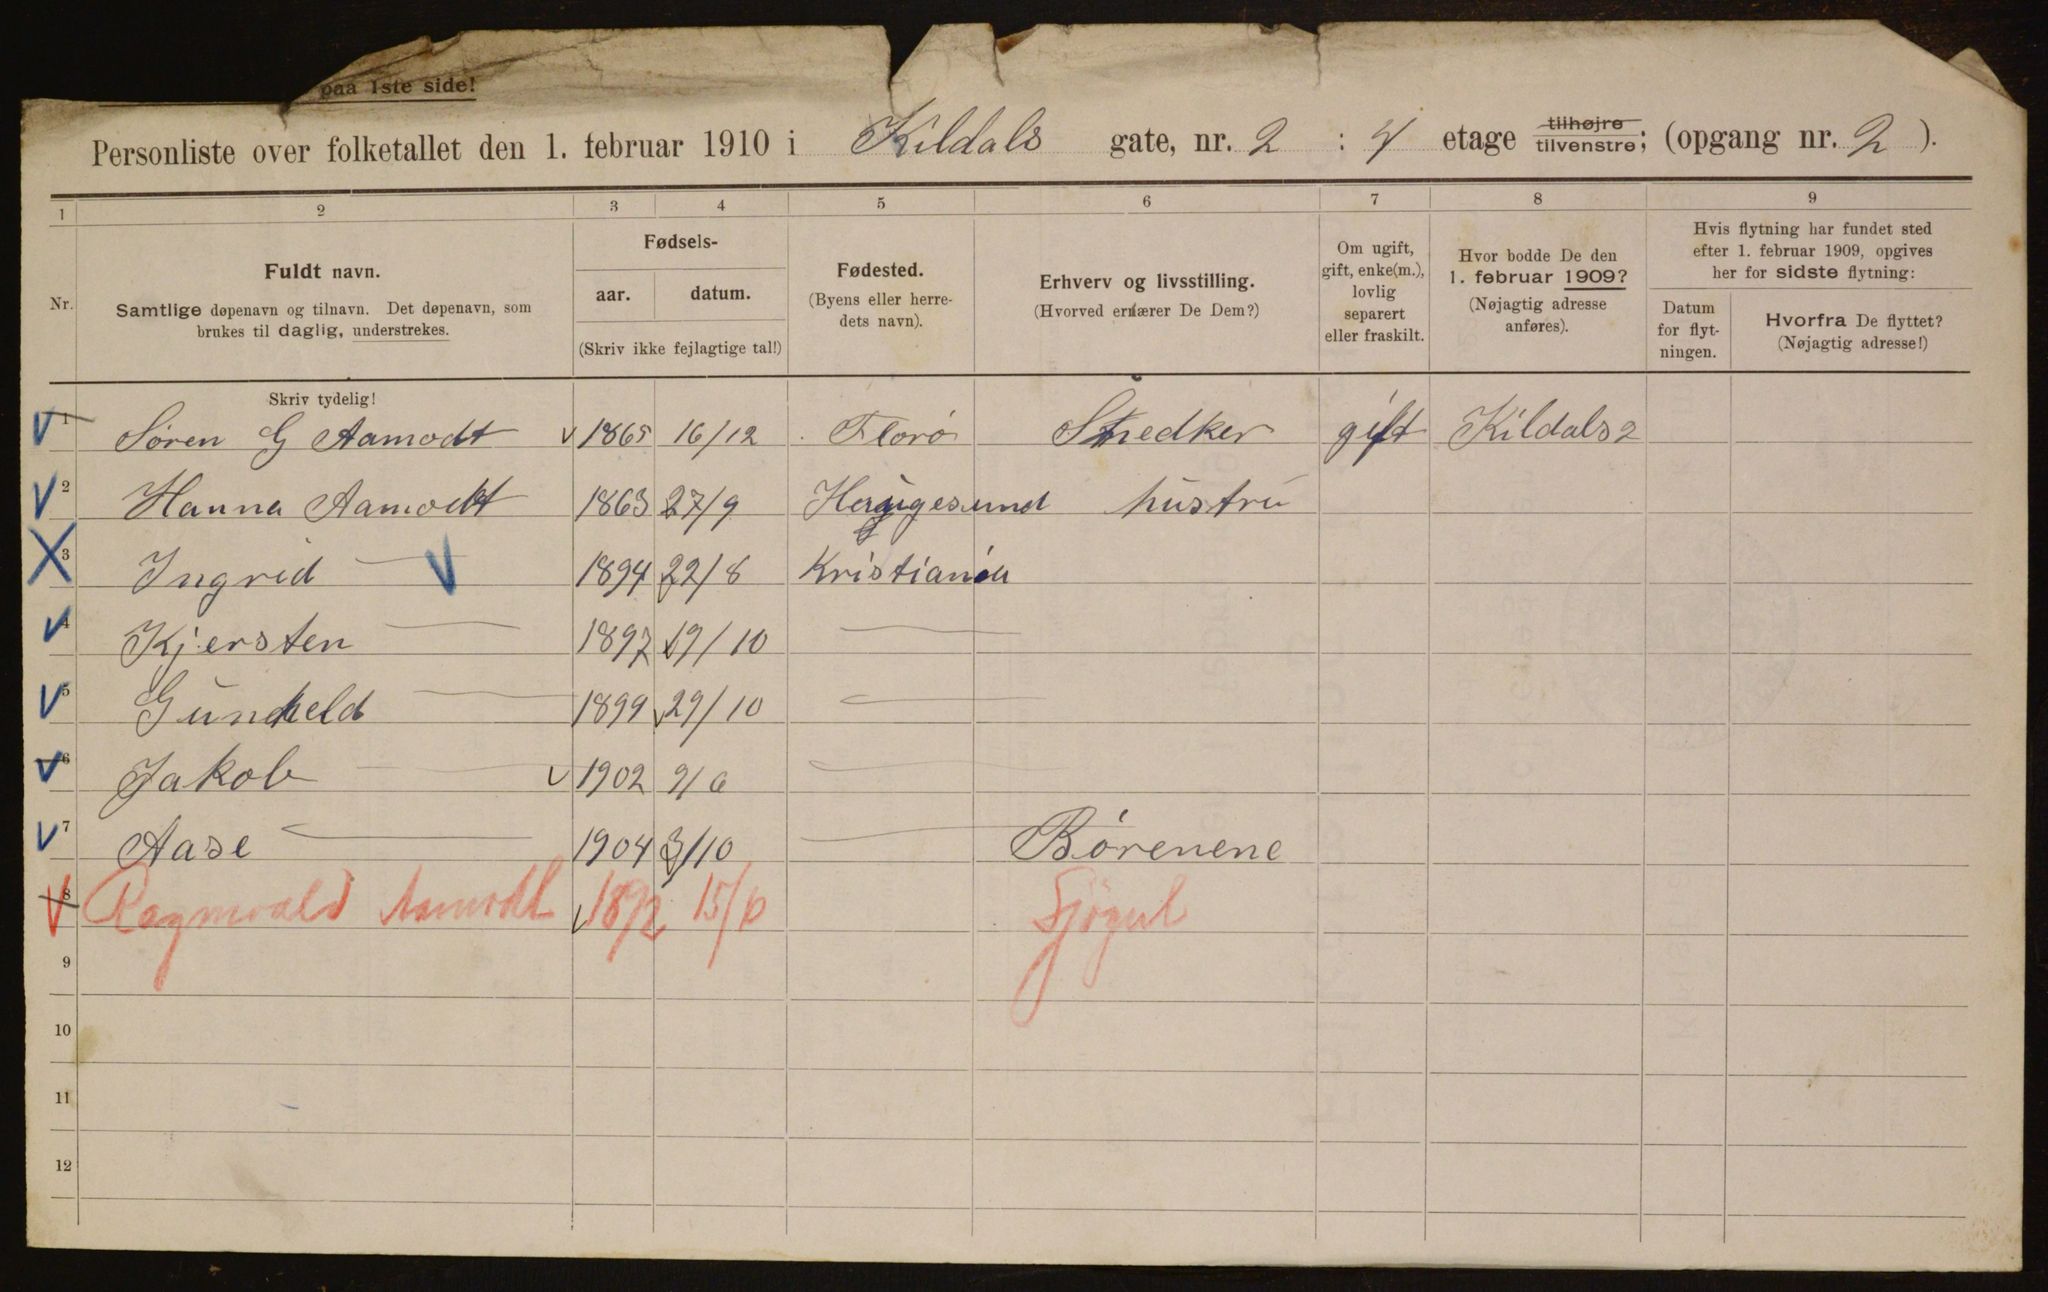 paa 1ste side!
Personliste over folketallet den 1. februar 1910 i Kildals gate, nr. 2 : 4 etage tilhøjre tilvenstre; (opgang nr. 2 ).
1 2 3 4 5 6 7 8 9
Nr. Fuldt navn. Samtlige døpenavn og tilnavn. Det døpenavn, som brukes til daglig, understrekes.
Fødsels- aar. datum. (Skriv ikke fejlagtige tal!)
Fødested. (Byens eller herredets navn).
Erhverv og livsstilling. (Hvorved ernærer De Dem?)
Om ugift, gift, enke(m.), lovlig separert eller fraskilt.
Hvor bodde De den 1. februar 1909? (Nøjagtig adresse anføres).
Hvis flytning har fundet sted efter 1. februar 1909, opgives her for sidste flytning:
Datum for flytningen. Hvorfra De flyttet? (Nøjagtig adresse!)
Skriv tydelig!
1 Søren G Aamodt 1865 16/12 Florø gift Kildals 2
2 Hanna Aamodt 1863 27/9 Haugesund hustru
3 Ingrid — 1894 22/8 Kristiania
4 Kjersten — 1897 19/10 —
5 Gunheld — 1899 29/10 —
6 Jakob — 1902 9/6 —
7 Aase — 1904 3/10 — Børenene
8 Ragnvald Aamodt 1892 15/6
9
10
11
12